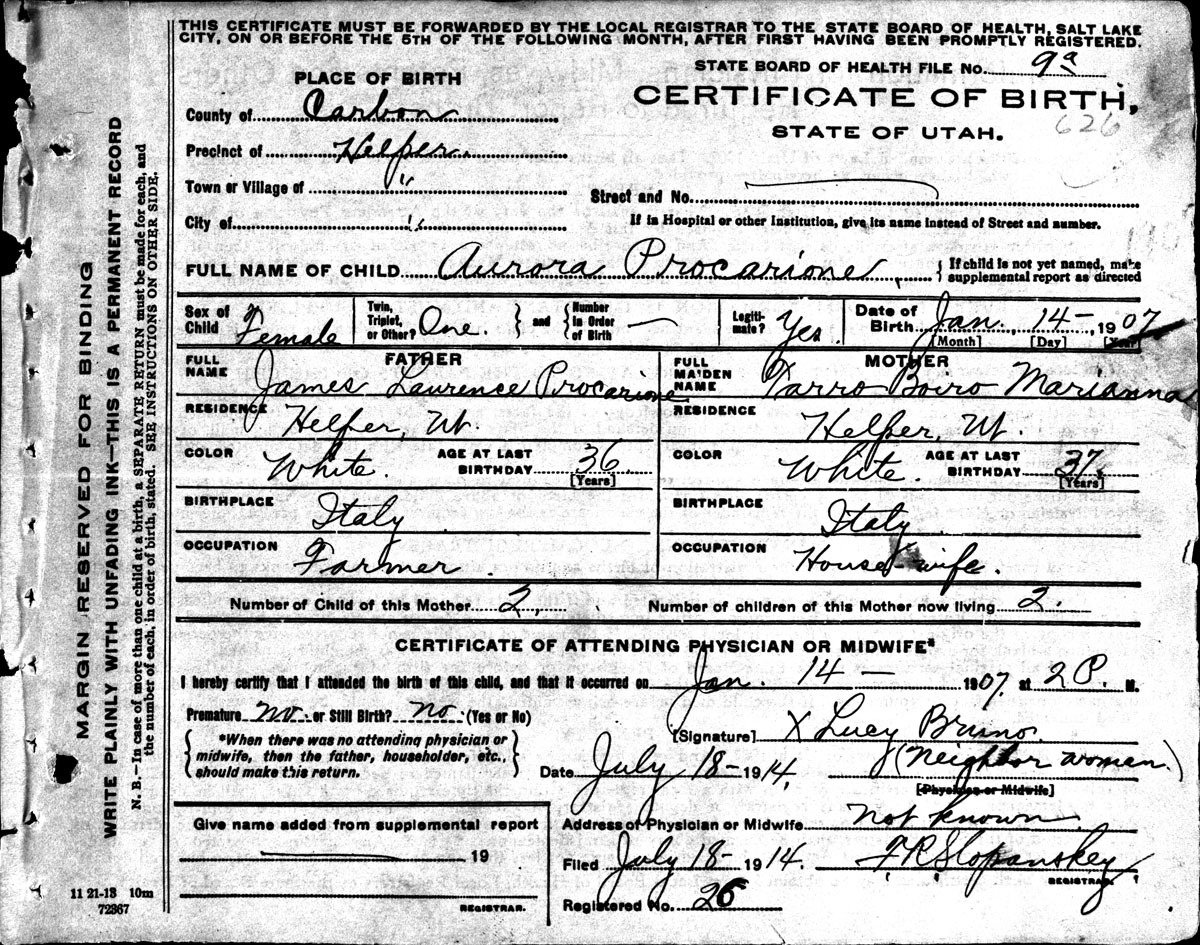 THIS CERTIFICATE MUST BE FORWARDED BY THE LOCAL REGISTRAR TO THE STATE BOARD OF HEALTH, SALT LAKE
CITY, ON OR BEFORE THE 5TH OF THE FOLLOWING MONTH, AFTER FIRST HAVING BEEN PROMPTLY REGISTERED.
STATE BOARD OF HEALTH FILE No. 9a
PLACE OF BIRTH
CERTIFICATE OF BIRTH,
626
STATE OF UTAH.
County of Carbon
Precinct of Helper.
Town or Village of "
Street and No.
City of "
If in Hospital or other Institution, give its name instead of Street and number.
FULL NAME OF CHILD Aurora Procarione
{ If child is not yet named, make
supplemental report as directed
Sex of Child Female
Twin, Triplet, or Other? One. } and { Number In Order of Birth —
Legiti-mate? Yes.
Date of Birth Jan. 14 - 1907
[Month] [Day] [Year]
FATHER
FULL NAME James Laurence Procarione
MOTHER
FULL MAIDEN NAME Varro Boiro Marianna
RESIDENCE Helper, Ut.
RESIDENCE Helper, Ut.
COLOR White. AGE AT LAST BIRTHDAY 36 [Years]
COLOR White. AGE AT LAST BIRTHDAY 37. [Years]
BIRTHPLACE Italy
BIRTHPLACE Italy
OCCUPATION Farmer.
OCCUPATION House-wife.
Number of Child of this Mother 2. Number of children of this Mother now living 2.
CERTIFICATE OF ATTENDING PHYSICIAN OR MIDWIFE*
I hereby certify that I attended the birth of this child, and that it occurred on Jan. 14 — 1907, at 2 P. M.
Premature no. or Still Birth? no. (Yes or No)
[Signature] X Lucy Bruno.
{ *When there was no attending physician or
midwife, then the father, householder, etc.,
should make this return. }
(Neighbor woman.)
Date July 18 - 1914.
[Physician or Midwife]
Address of Physician or Midwife Not known
Give name added from supplemental report
19
Filed July 18 - 1914. F.R. Slopanskey
REGISTRAR.
Registered No. 26
REGISTRAR.
MARGIN RESERVED FOR BINDING
WRITE PLAINLY WITH UNFADING INK—THIS IS A PERMANENT RECORD
N. B.—In case of more than one child at a birth, a SEPARATE RETURN must be made for each, and
the number of each, in order of birth, stated. SEE INSTRUCTIONS ON OTHER SIDE.
11 21-13 10m
72367